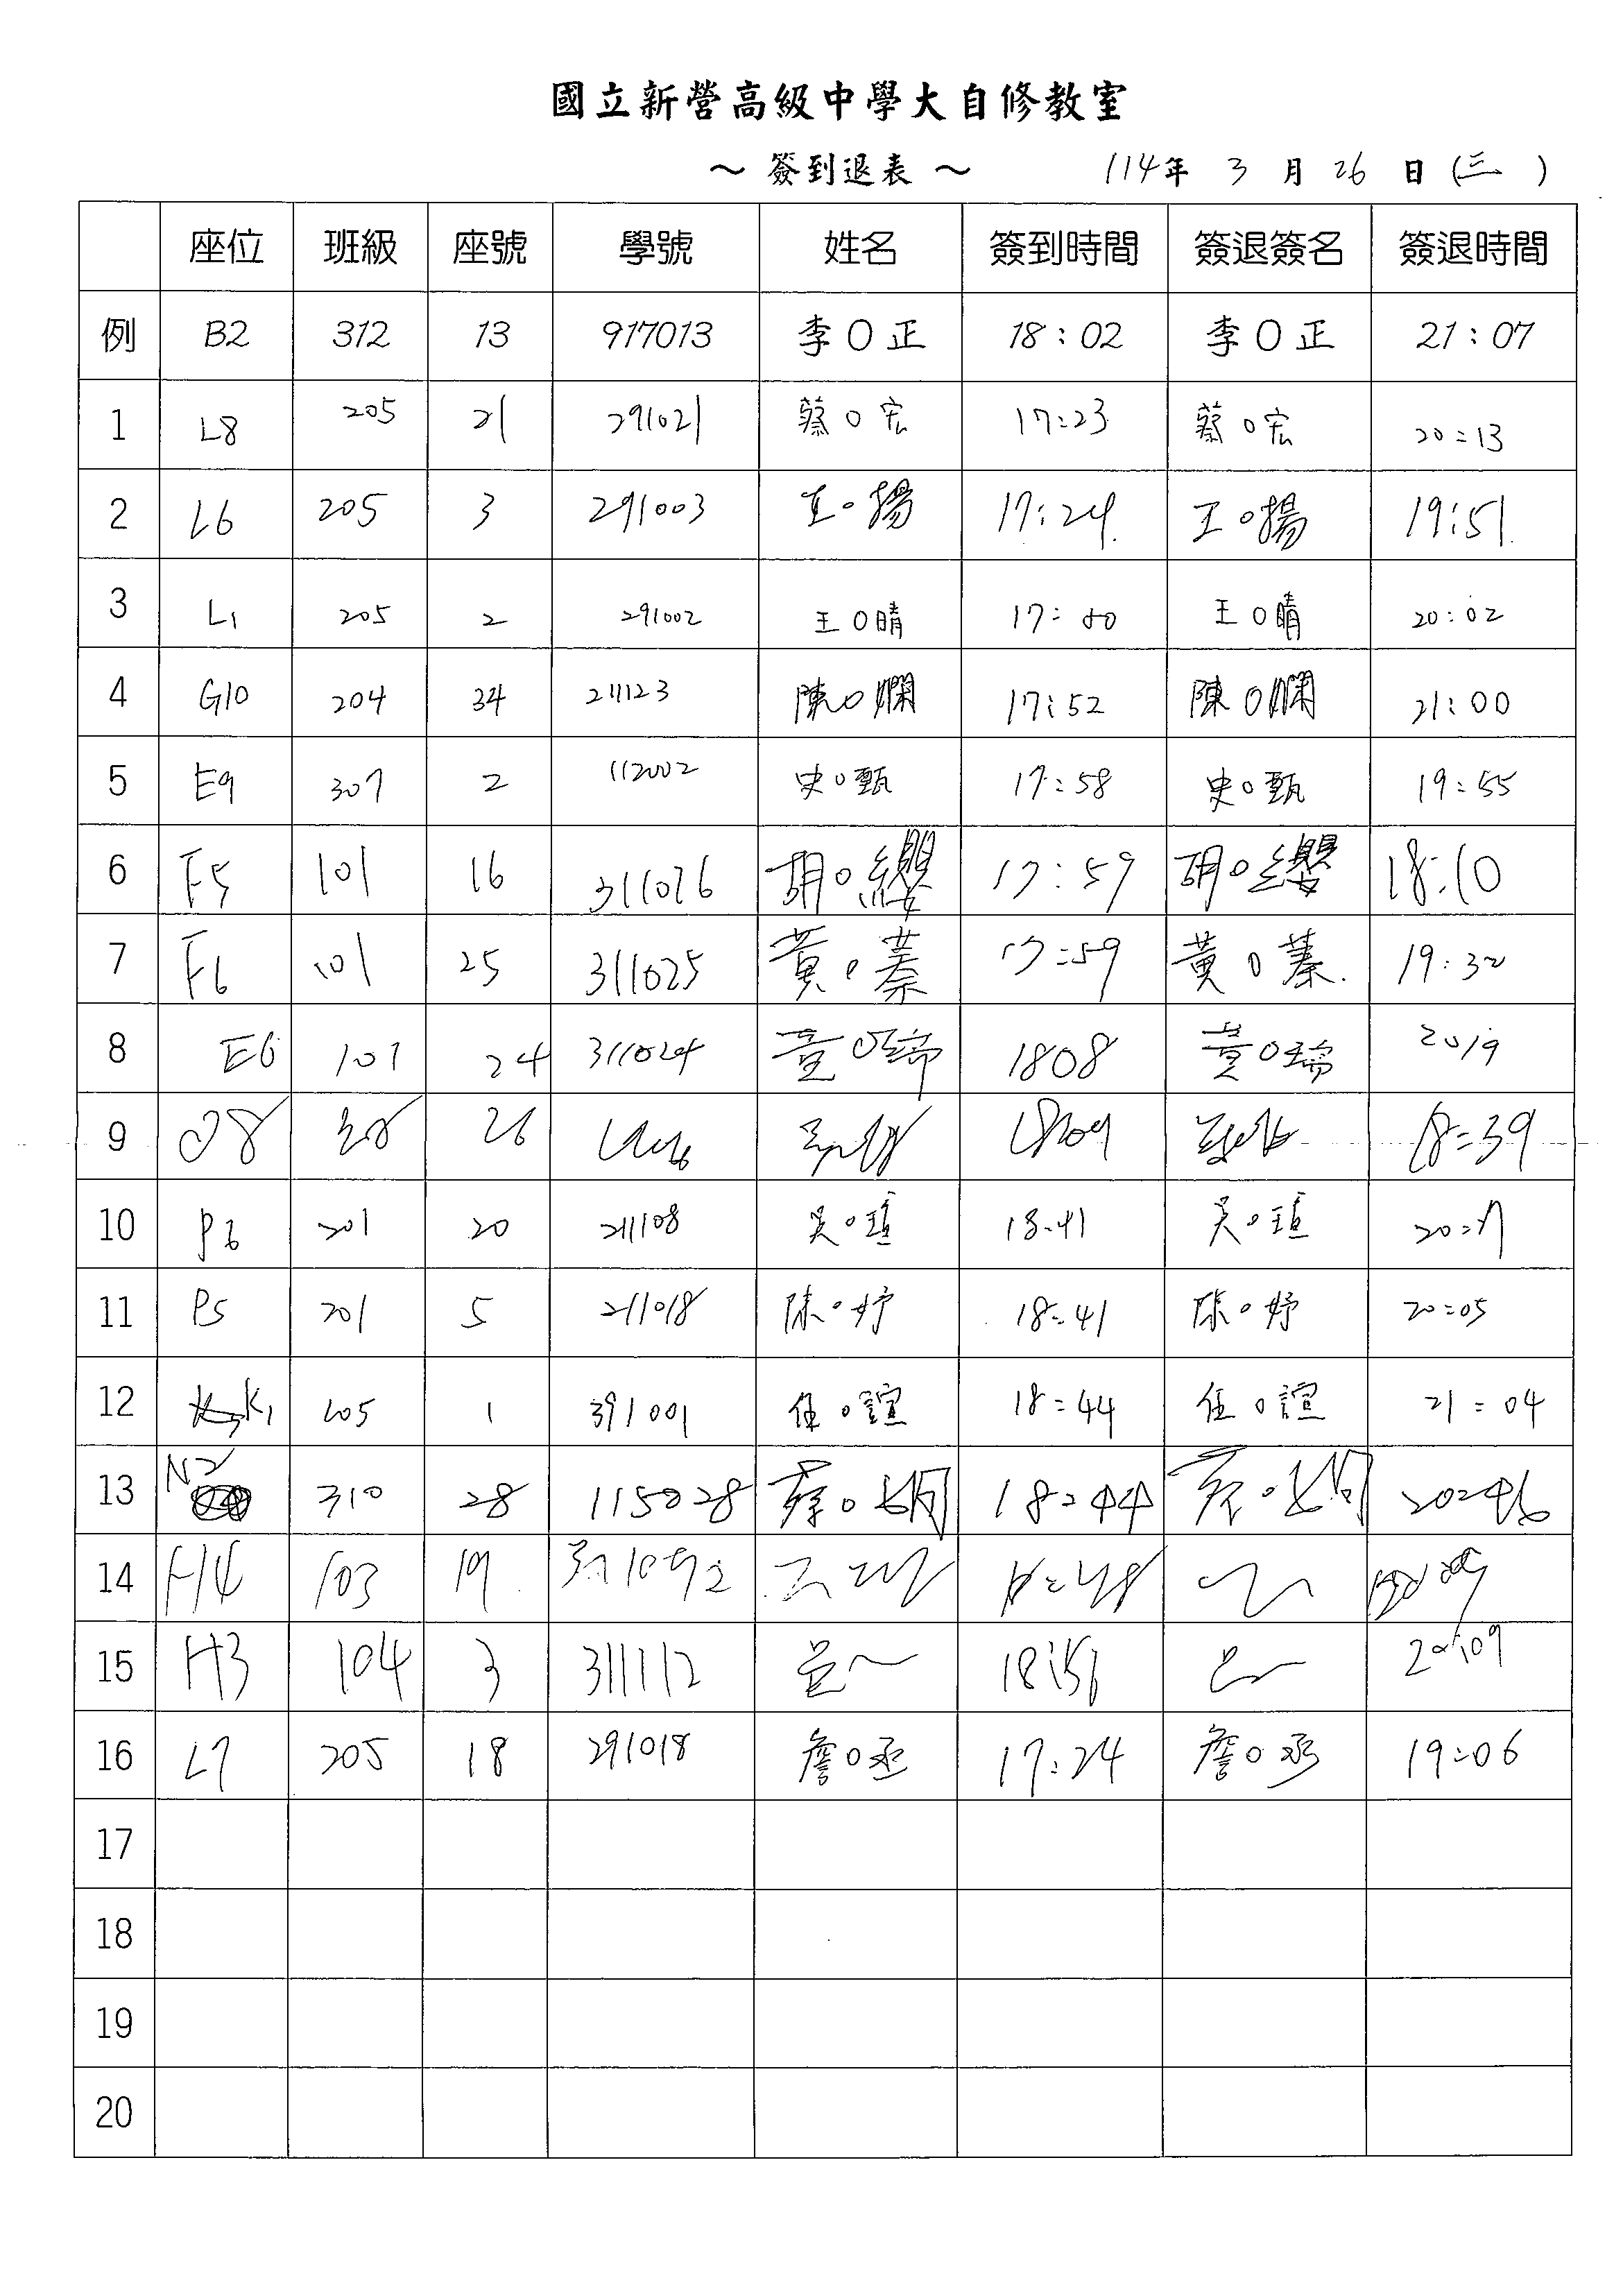 國立新營高級中學大自修教室
～ 簽到退表 ～ 114年 3 月 26 日 (三 )
座位 班級 座號 學號 姓名 簽到時間 簽退簽名 簽退時間
例 B2 312 13 917013 李O正 18:02 李O正 21:07
1 L8 205 21 291021 蔡O宏 17:23 蔡O宏 20:13
2 L6 205 3 291003 王O揚 17:24 王O揚 19:51
3 L1 205 2 291002 王O晴 17: 王O晴 20:02
4 G10 204 34 211123 陳O嫻 17:52 陳O嫻 21:00
5 E9 307 2 112002 史O甄 17:58 史O甄 19:55
6 F5 101 16 311016 胡O纓 17:59 胡O纓 18:10
7 F6 101 25 311025 黃O蓁 17:59 黃O蓁 19:32
8 E6 101 24 311024 黃O 1808 黃O瑞 2019
9 26 18:39
10 P6 201 20 211108 吳O瑄 18:41 吳O瑄 20:
11 P5 201 5 211018 陳O妤 18:41 陳O妤 20:05
12 K1 205 1 391001 任O諠 18:44 任O諠 21:04
13 N2 310 28 115028 蔡O娟 18:44 蔡O娟 20:46
14 H4 103 19
15 H3 104 3 311112 20:09
16 L7 205 18 291018 詹O丞 17:24 詹O丞 19:06
17
18
19
20